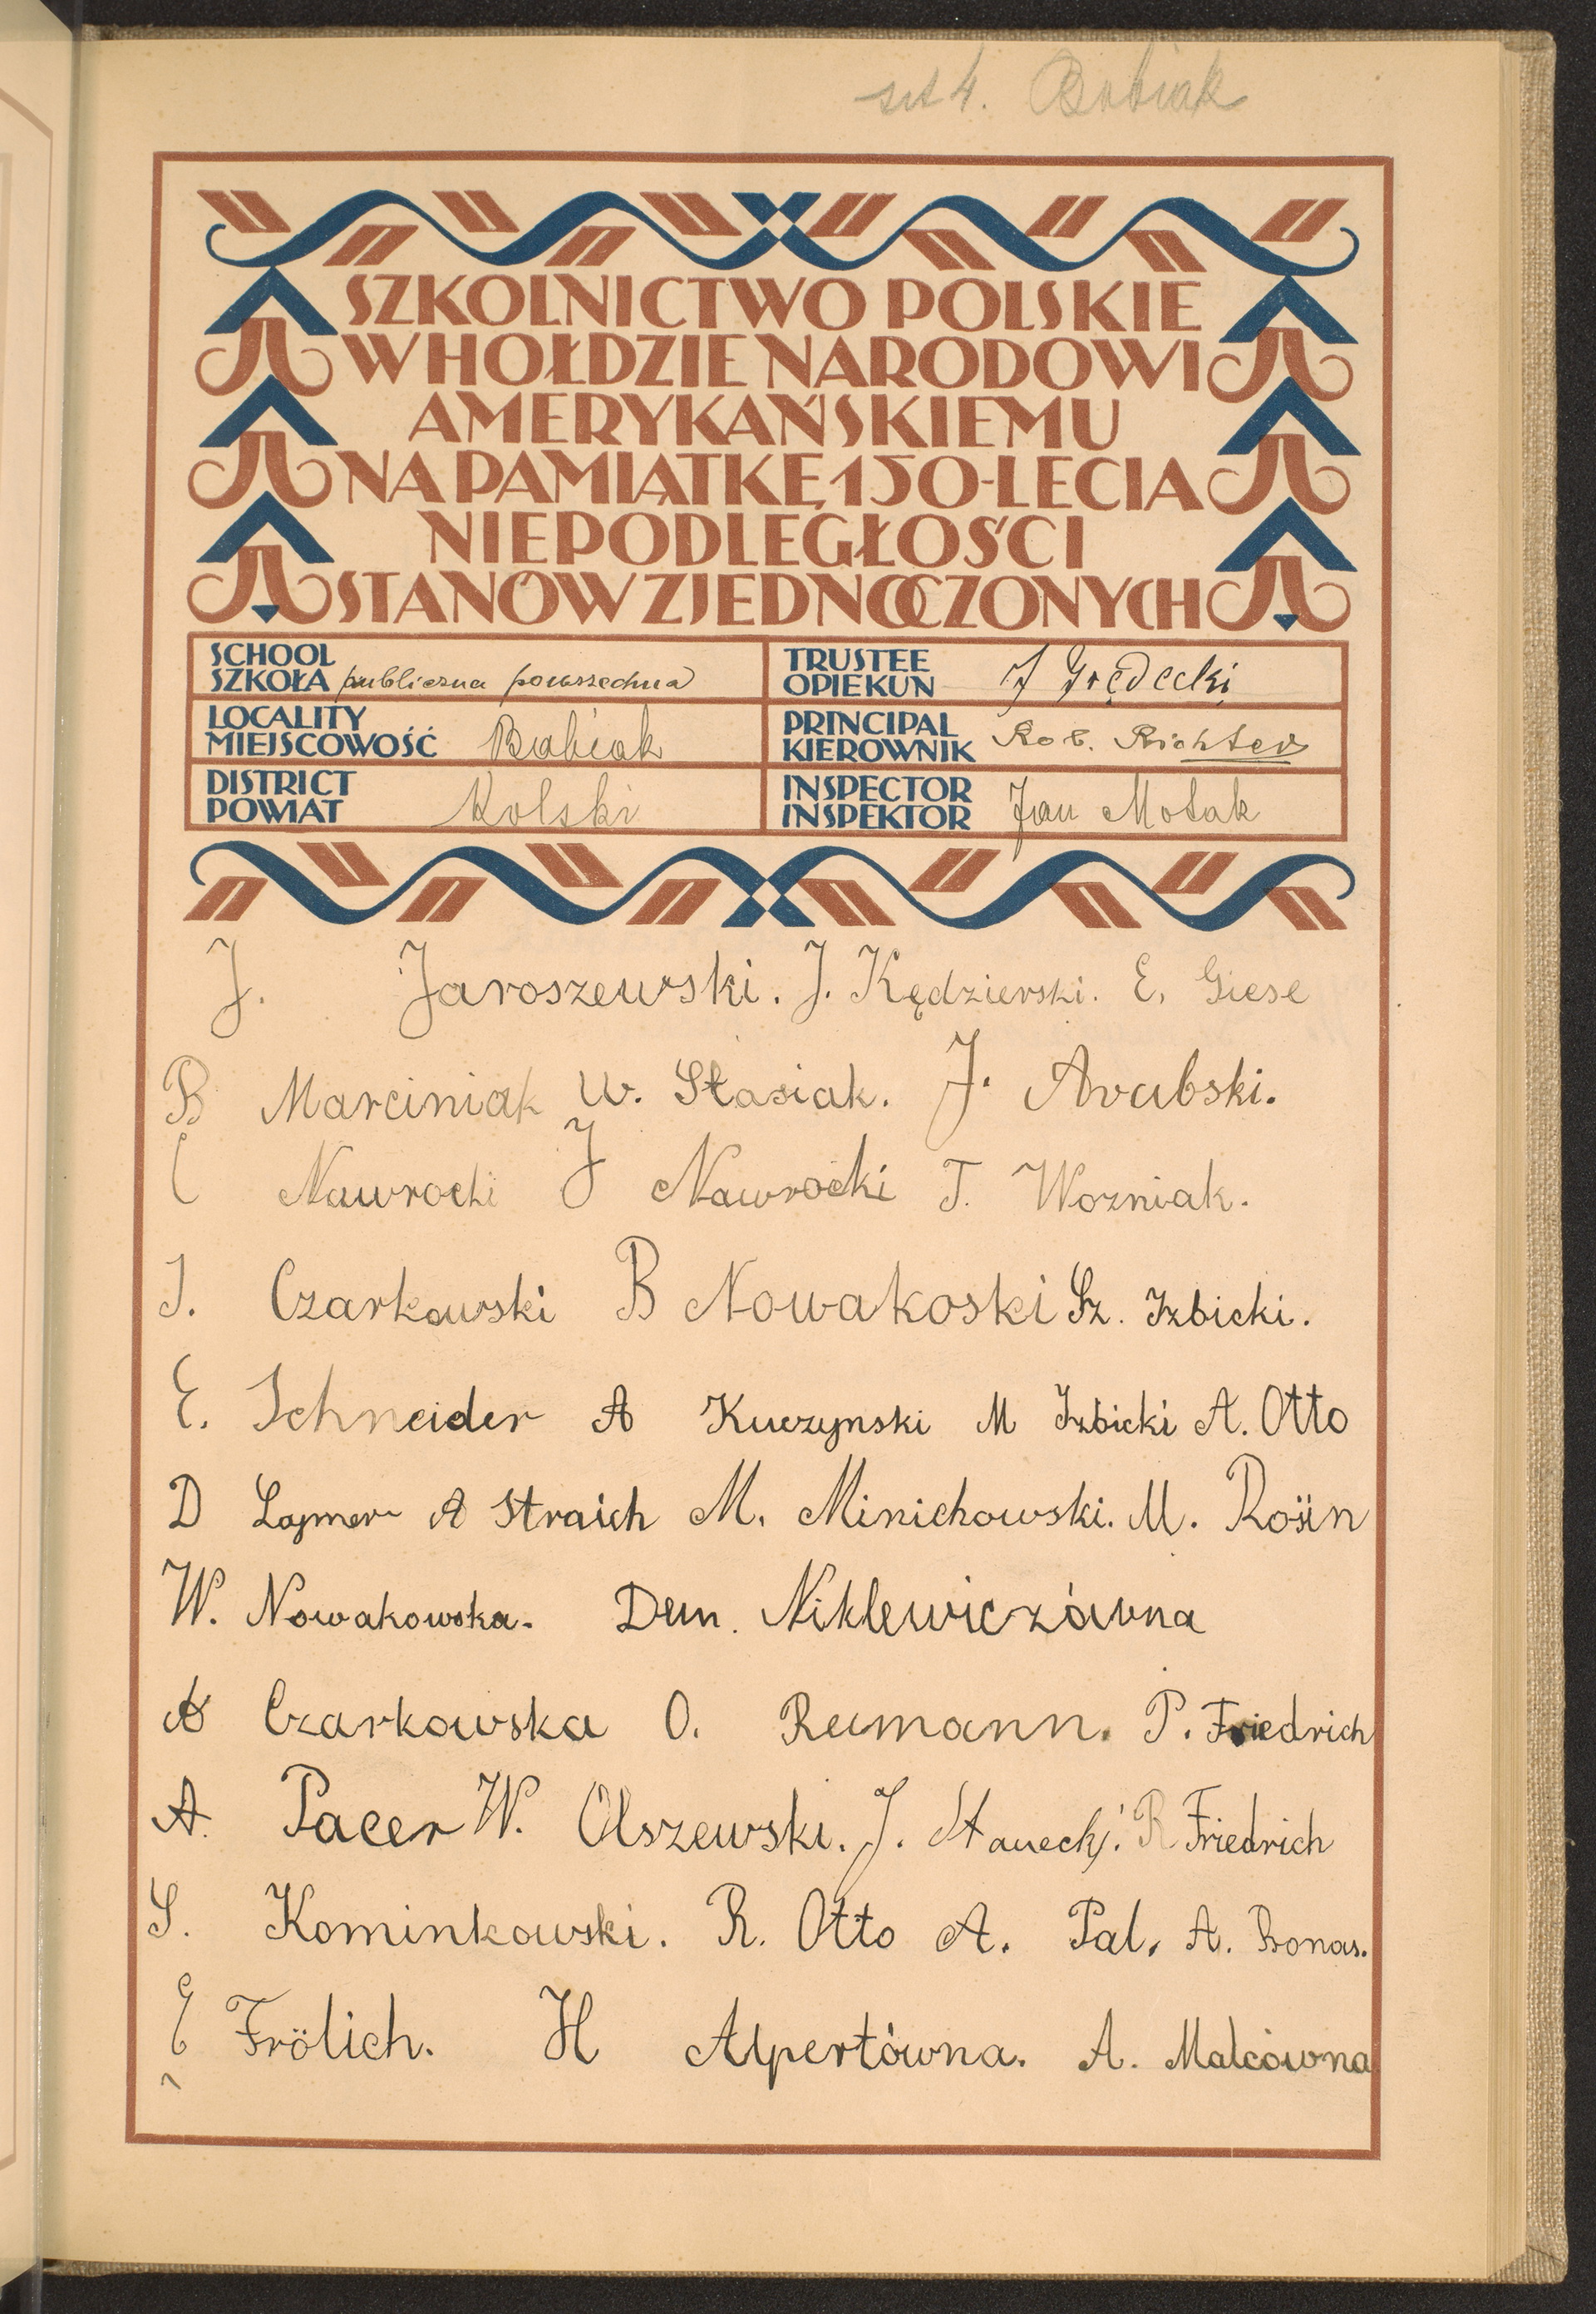 Babiak
SZKOLNICTWO POLSKIE
W HOŁDZIE NARODOWI
AMERYKAŃSKIEMU
NA PAMIĄTKĘ 150-LECIA
NIEPODLEGŁOŚCI
STANÓW ZJEDNOCZONYCH
SCHOOL
SZKOŁA publiczna powszechna
TRUSTEE
OPIEKUN J Grędecki
LOCALITY
MIEJSCOWOŚĆ Babiak
PRINCIPAL
KIEROWNIK Rob. Richter
DISTRICT
POWIAT Kolski
INSPECTOR
INSPEKTOR Jan Motak
J. Jaroszewski. J. Kędzierski. E. Giese
B Marciniak W. Stasiak. J. Arabski.
C Nawrocki J Nawrocki T. Wozniak.
J. Czarkowski B Nowakoski Sz. Izbicki.
E. Schneider A Kuczynski M Izbicki A. Otto
D Lajmer A Straich M. Minichowski. M. Rosin
W. Nowakowska. Dem. Niklewiczówna
A Czarkowska O. Reumann. P. Friedrich
A. Pacer W. Olszewski. J. Stanecki. R Friedrich
S. Kominkowski. R. Otto A. Pal. A. Bonas.
E Frölich. H Alpertówna. A. Malcówna